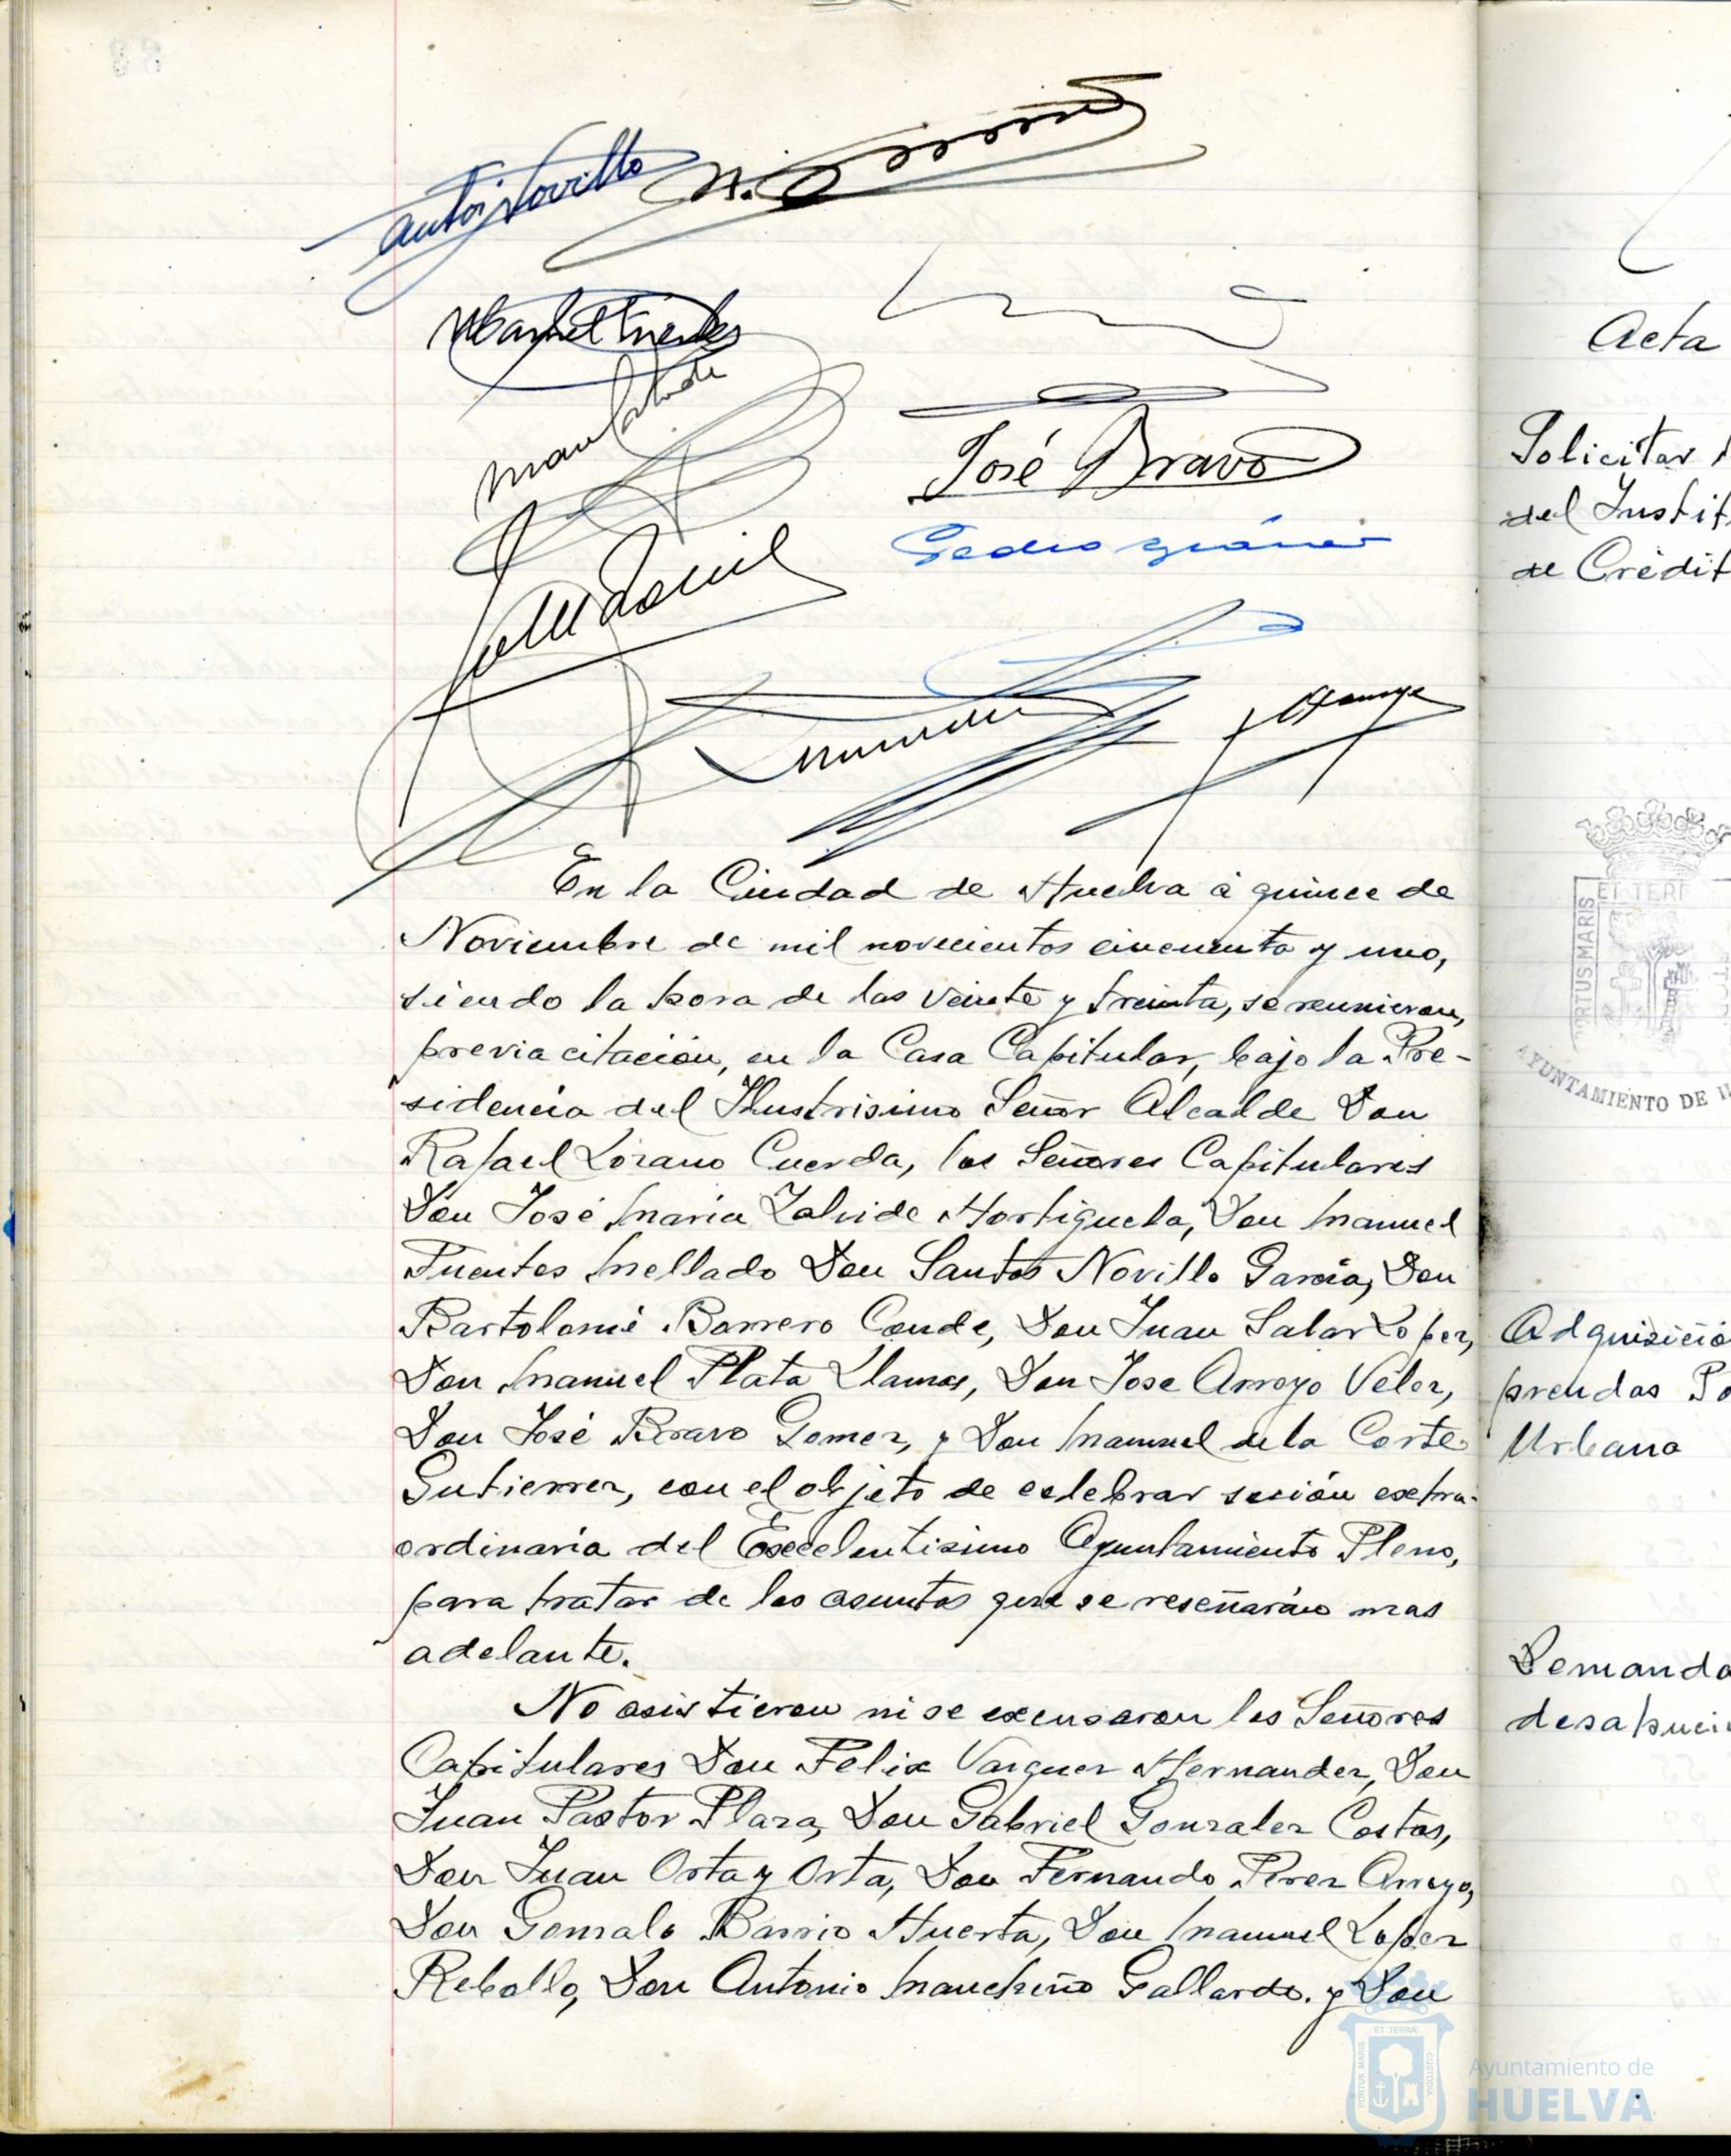 José Bravo
En la Ciudad de Huelva á quince de
Noviembre de mil novecientos cincuenta y uno,
siendo la hora de las veinte y treinta, se reunieron,
previa citación, en la Casa Capitular, bajo la Pre-
sidencia del Ilustrisimo Señor Alcalde Don
Rafael Lozano Cuerda, los Señores Capitulares
Don José Maria Zalvide Hortiguela, Don Manuel
Fuentes Mellado Don Santos Novillo Garcia, Don
Bartolomé Borrero Conde, Don Juan Salas Lopez,
Don Manuel Plata Llamas, Don Jose Arroyo Velez,
Don José Bravo Gomez, y Don Manuel de la Corte
Gutierrez, con el objeto de celebrar sesión extra-
ordinaria del Excelentisimo Ayuntamiento Pleno,
para tratar de los asuntos que se reseñarán mas
adelante.
No asistieron ni se excusaron los Señores
Capitulares Don Felix Vazquez Hernandez, Don
Juan Pastor Plaza, Don Gabriel Gonzalez Costas,
Don Juan Orta y Orta, Don Fernando Perez Arroyo,
Don Gonzalo Barrio Huerta, Don Manuel Lopez
Rebollo, Don Antonio Mancheño Gallardo. y Don
Acta
Solicitar
del Instit
de Crédit
ET TERR
PORTUS MARIS
AYUNTAMIENTO DE H
Adquisició
prendas Po
Urbana
Demanda
desahuci
ET TERRÆ
PORTUS MARIS
CUSTODIA
Ayuntamiento de
HUELVA